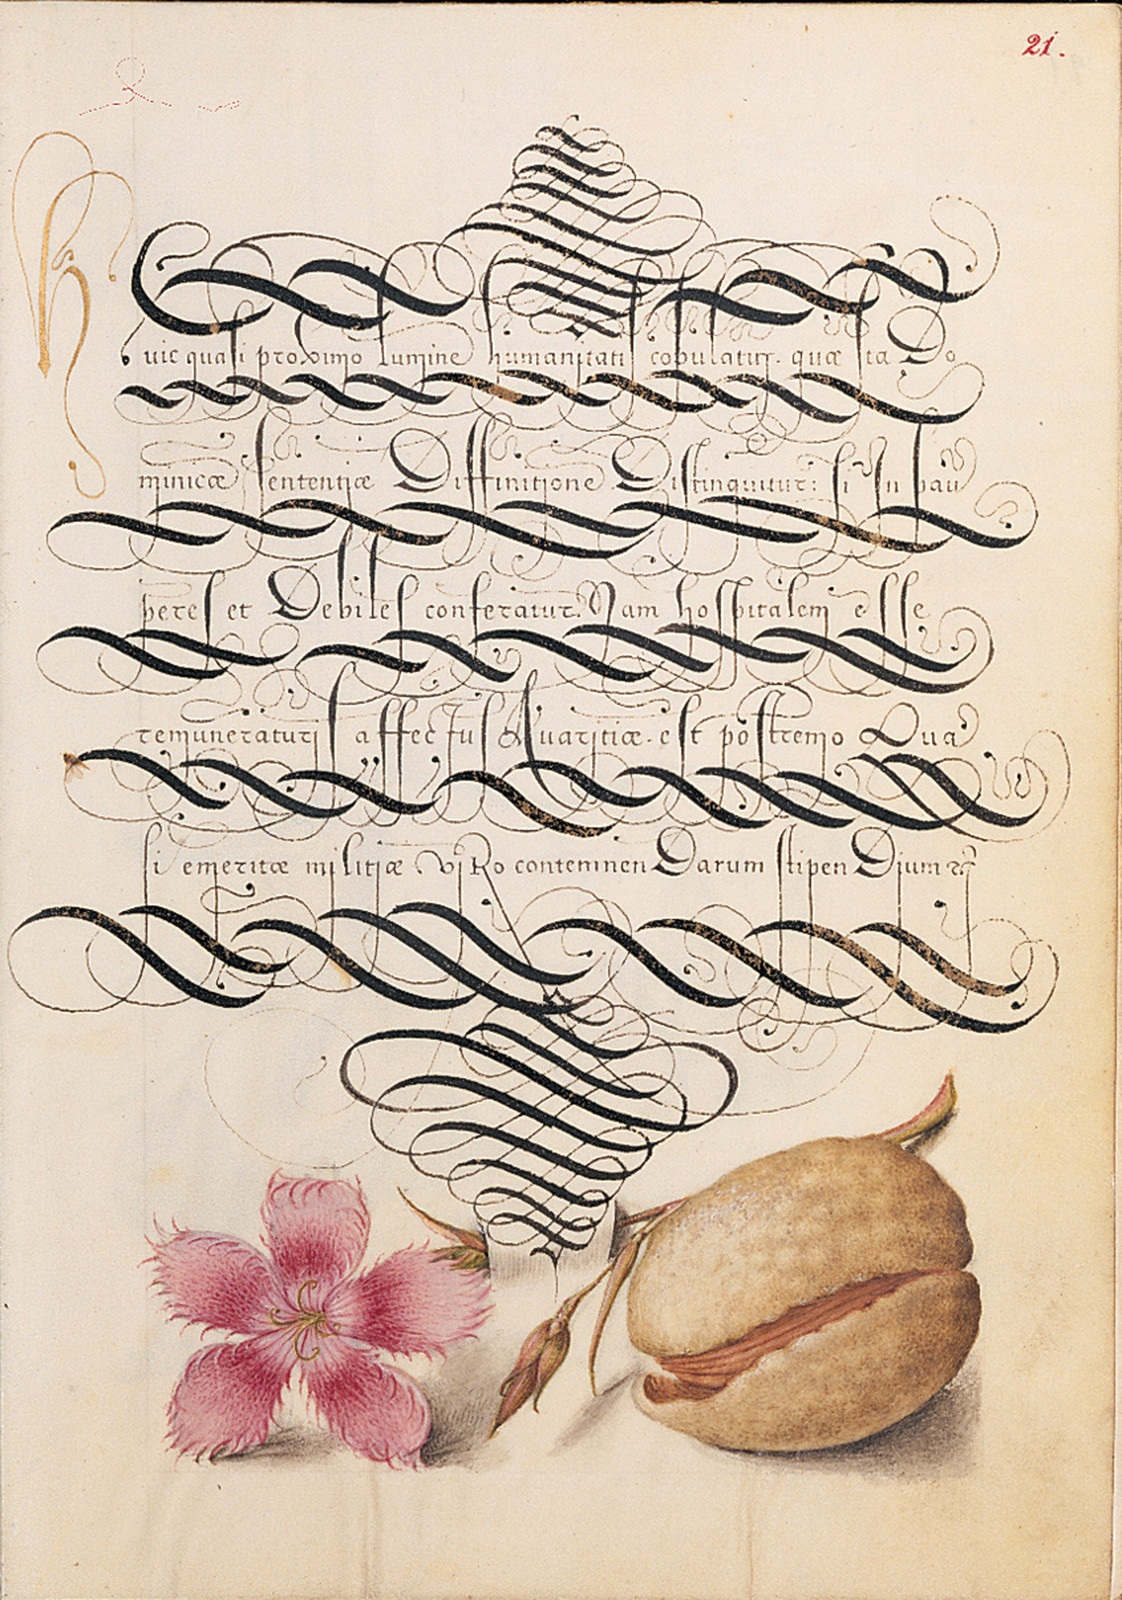 21.
Huic quasi proximo lumine humanitati copulatur. quæ ita Do
minicæ sententiæ Diffinitione Distinguitur: si In pau
peres et Debiles conferatur. Nam hospitalem esse
remuneraturis affectus Avaritiæ est postremo Qua
si emeritæ militiæ viRo contemnenDarum stipenDium